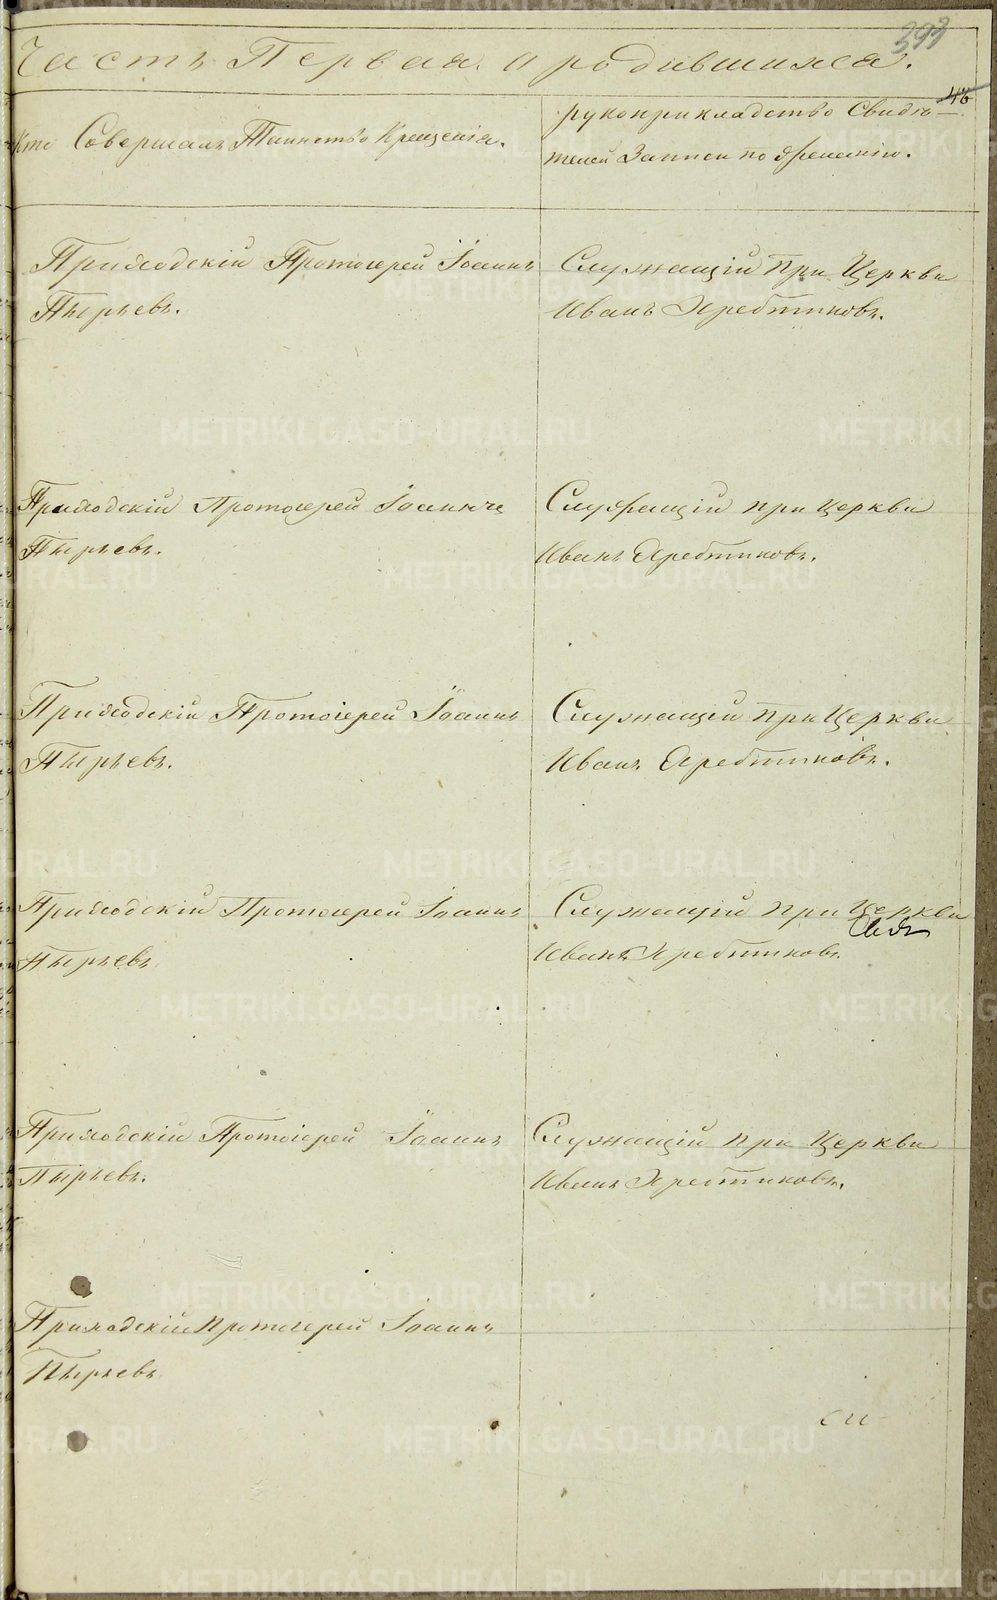 393
Часть Первая, о родившихся.
46
Кто Совершалъ Таинство Крещенія.
рукоприкладство Свидѣ-
телей Записи по желанію.
Приходскій Протоіерей Іоаннъ
Пырьевъ.
Служащій при Церкви
Иванъ Хребтиковъ.
Приходскій Протоіерей Іоаннъ
Пырьевъ.
Служащій при Церкви
Иванъ Хребтиковъ.
Приходскій Протоіерей Іоаннъ
Пырьевъ.
Служащій при Церкви
Иванъ Хребтиковъ.
Приходскій Протоіерей Іоаннъ
Пырьевъ
Служащій при Церкви
Иванъ Хребтиковъ
Приходскій Протоіерей Іоаннъ
Пырьевъ.
Служащій при Церкви
Иванъ Хребтиковъ.
Приходскій Протоіерей Іоаннъ
Пырьевъ
METRIKI.GASO-URAL.RU